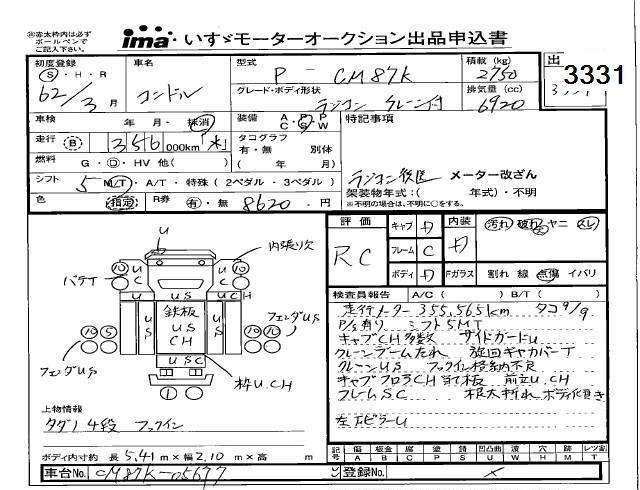 ㊟赤太枠内は必ず
ボールペンで
ご記入下さい。
ima・いすゞモーターオークション出品申込書
初度登録 車名 型式 積載 (kg) 出
S・H・R P - CM87K 2750 3331
62/3月 コンドル グレード・ボディ形状 排気量 (cc)
ラジコン クレーン付 6920
車検 年 月・抹消 装備 A・P・P C S W 特記事項
走行 B 356,000km タコグラフ
有・無 別体
燃料 G・D・HV 他( ) ( 年 月)
ラジコン後医 メーター改ざん
シフト 5 M/T・A/T・特殊 (2ペダル・3ペダル) 架装物年式:( 年式)・不明
※不明の場合は、不明に○をする。
色 指定 R券 有・無 8620.円
評価 キャブ D 内装 汚れ 破れ ヤニ スレ
RC フレーム C D
ボディ D Fガラス 割れ 線 点傷 イバリ
検査員報告 A/C ( ) B/T ( )
走行メーター 355,565km タコ 9/9
P/S有り シフト5MT
キャブCH多数 サイドガードU
クレーンブームたれ 旋回ギヤカバーT
クレーンUS フックイン格納不良
キャブフロアCH 当て板 前立U.CH
フレームSC 根太折れ ボデー付き
左エピラーU
U
内張り欠
10 U U 10
C C
パテT
US
U CH
鉄板
US
CH
U S
U S
USC
10 5
フェンダUS
10
フェンダUS
枠U.CH
1
上物情報
タダノ 4段 フックイン
ボディ内寸約 長 5.41 m×幅 2.10 m×高 m
記号 傷 板金 腐 塗 錆 凹凸曲 波 穴 跡 レツ割
A B C P S U W H M T
車台No. CM87K-05677 登録No. ×